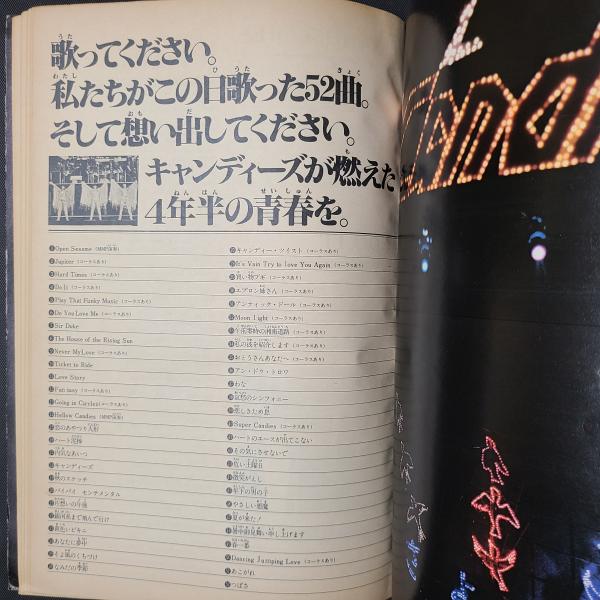 歌ってください。
私たちがこの日歌った52曲。
そして想い出してください。
キャンディーズが燃えた
4年半の青春を。
❶Open Sesame (MMP演奏)
❷Jupiter (コーラスあり)
❸Hard Times (コーラスあり)
❹Do It (コーラスあり)
❺Play That Funky Music (コーラスあり)
❻Do You Love Me (コーラスあり)
❼Sir Duke
❽The House of the Rising Sun
❾Never My Love (コーラスあり)
❿Ticket to Ride
⓫Love Story
⓬Fantasy (コーラスあり)
⓭Going in Circles(コーラスあり)
⓮Hellow Candies (MMP演奏)
⓯恋のあやつり人形
⓰ハート泥棒
⓱内気なあいつ
⓲キャンディーズ
⓳秋のスケッチ
⓴バイバイ センチメンタル
片想いの午後
銀河系まで飛んで行け
黄色いビキニ
あなたに夢中
そよ風のくちづけ
なみだの季節
キャンディー・ツイスト (コーラスあり)
It's Vain Try to love You Again (コーラスあり)
買い物ブギ (コーラスあり)
エプロン姉さん (コーラスあり)
アンティック・ドール (コーラスあり)
Moon Light (コーラスあり)
午前零時の湘南道路 (コーラスあり)
私の彼を紹介します (コーラスあり)
おとうさんあなたへ (コーラスあり)
アン・ドゥ・トロワ
わな
哀愁のシンフォニー
悲しきため息
Super Candies (コーラスあり)
ハートのエースが出てこない
その気にさせないで
危い土曜日
微笑がえし
年下の男の子
やさしい悪魔
夏が来た!
暑中御見舞い申し上げます
春一番
Dancing Jumping Love (コーラスあり)
あこがれ
つばさ